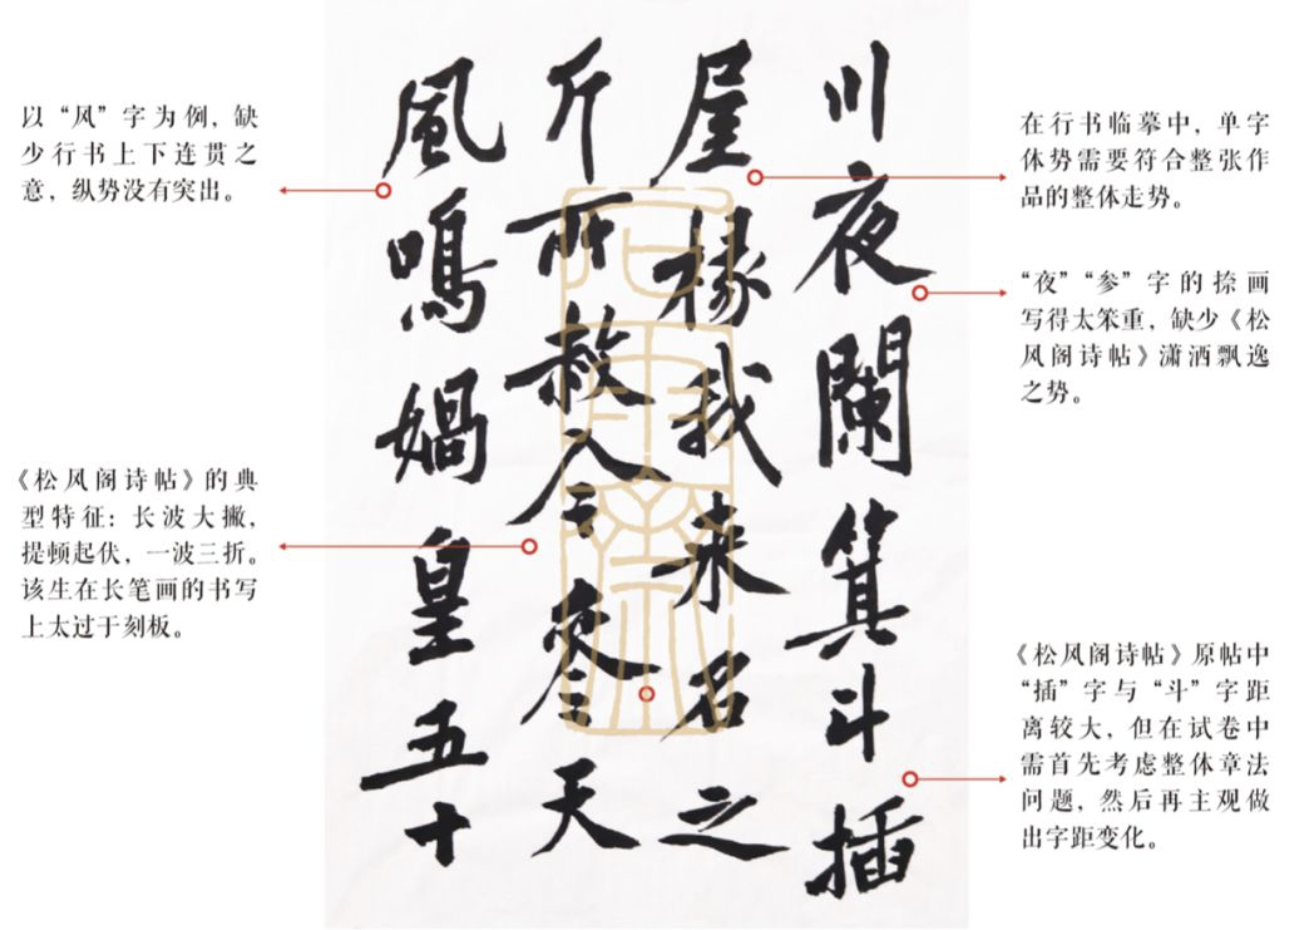 以“风”字为例，缺
少行书上下连贯之
意，纵势没有突出。
《松风阁诗帖》的典
型特征：长波大撇，
提顿起伏，一波三折。
该生在长笔画的书写
上太过于刻板。
川夜闌箕斗插
屋椽我来名之
斤所赦今參天
風鳴媧皇五十
在行书临摹中，单字
体势需要符合整张作
品的整体走势。
“夜”“参”字的捺画
写得太笨重，缺少《松
风阁诗帖》潇洒飘逸
之势。
《松风阁诗帖》原帖中
“插”字与“斗”字距
离较大，但在试卷中
需首先考虑整体章法
问题，然后再主观做
出字距变化。